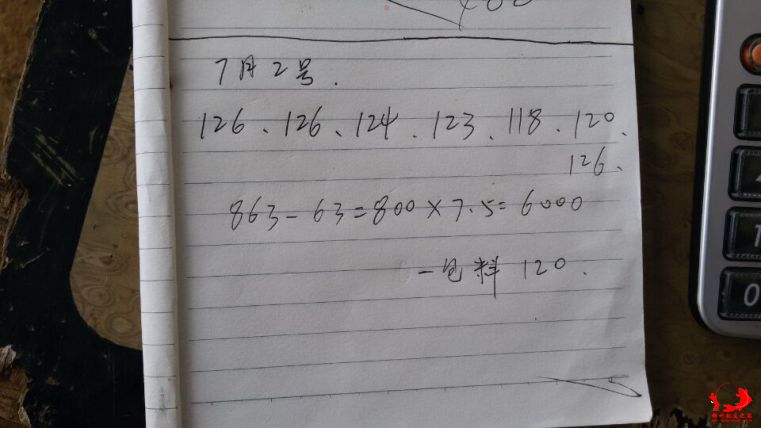 7月2号.
126、126、124、123、118、120、
126、
863-63=800×7.5=6000
一包料 120.